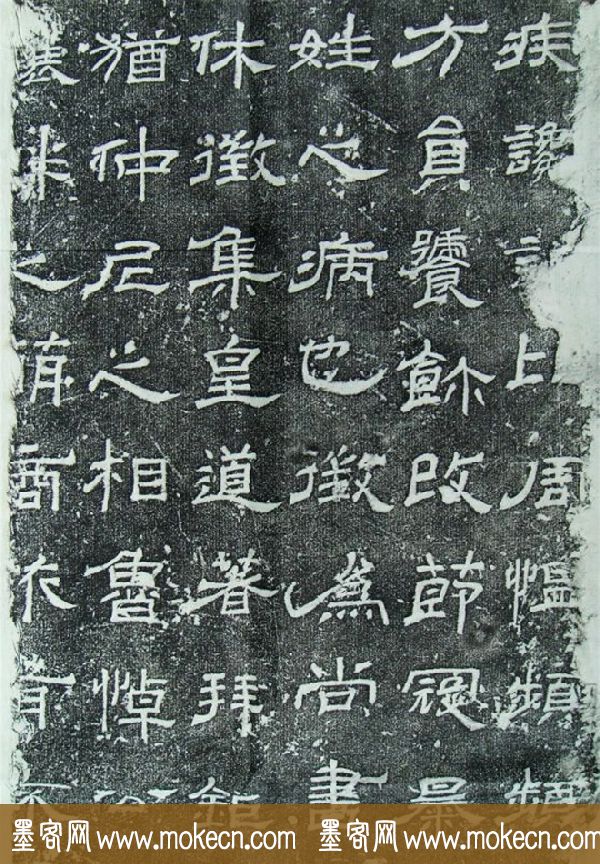 疾讒比周愠頻頻
方員饕飻改節寇暴
姓之病也徵為尚書
休徵集皇道著拜鉅
猶仲尼之相魯悼
之有
墨客网 www.mokecn.com 墨客网 www.mokecn.com